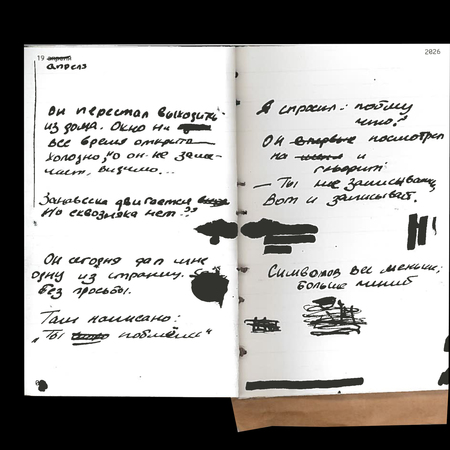 19 апреля
апреля
Он перестал выходить
из дома. Окно на
все время открыто
холодно, но он не заме-
чает, видимо...
Занавеска двигается
Но сквозняка нет??
Он сегодня дал мне
одну из страниц.
без просьбы.
Там написано:
„Ты поймёшь“
2026
Я спросил: почему
что?
Он впервые посмотрел
на и
говорит:
— Ты не записывай,
Вот и записывай.
Символов все меньше,
больше линий